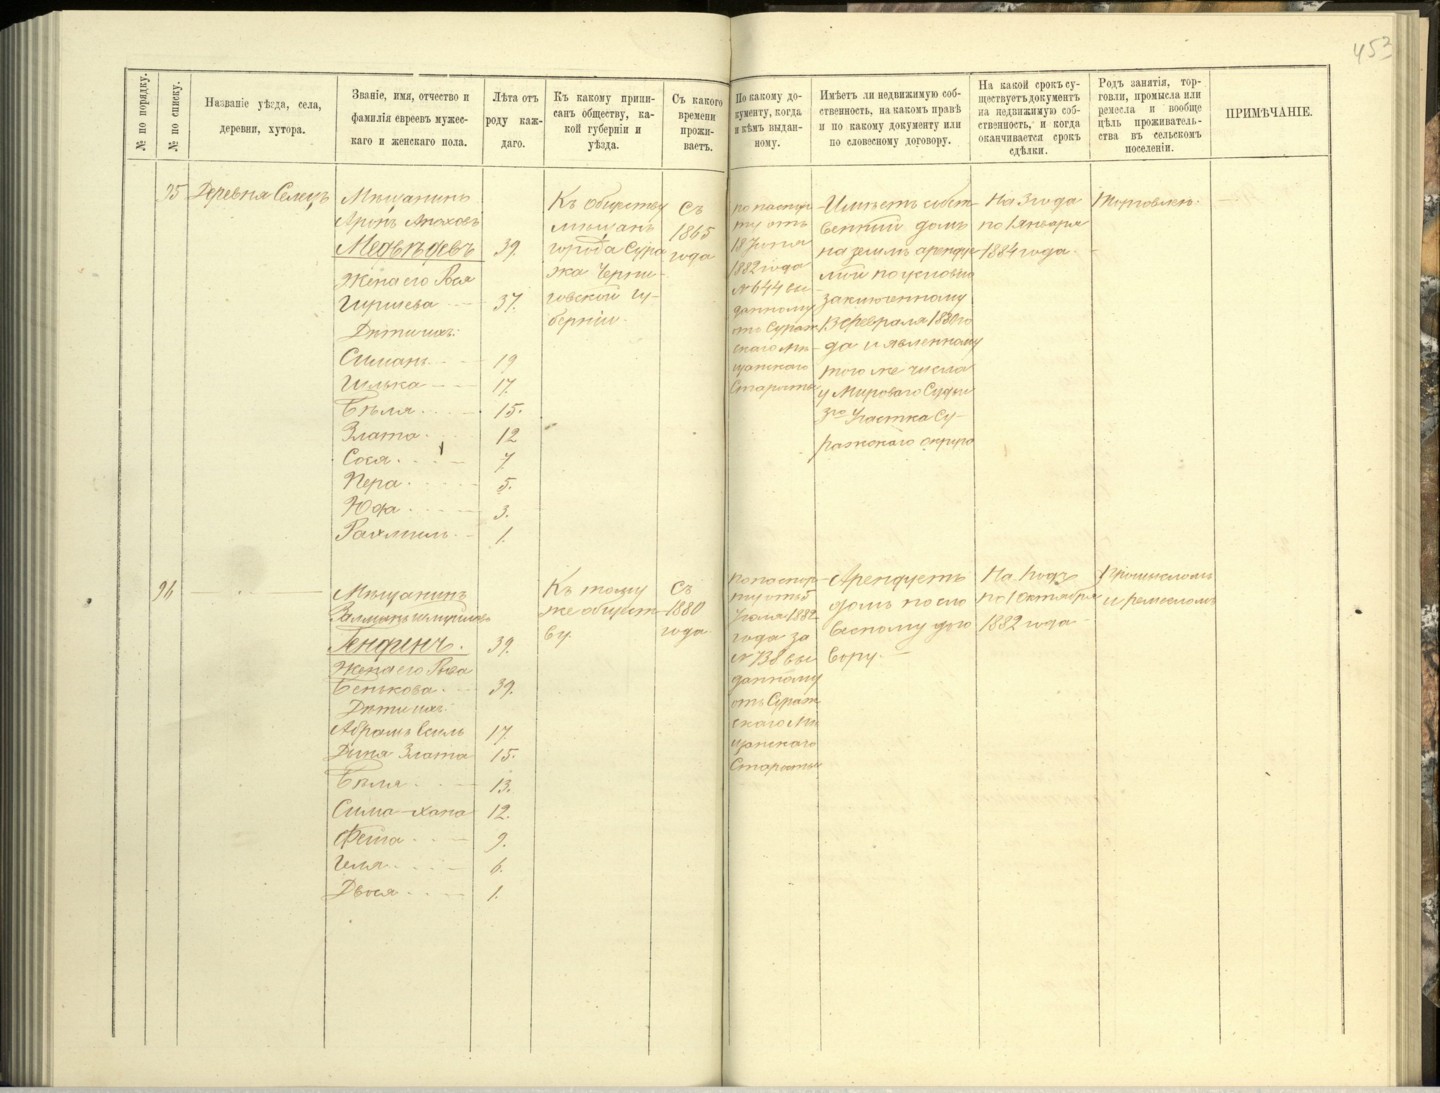 453
№ по порядку.
№ по списку.
Названіе уѣзда, села,
деревни, хутора.
Званіе, имя, отчество и
фамилія евреевъ мужес-
каго и женскаго пола.
Лѣта отъ
роду каж-
даго.
Къ какому припи-
санъ обществу, ка-
кой губерніи и
уѣзда.
Съ какого
времени
прожи-
ваетъ.
По какому до-
кументу, когда
и кѣмъ выдан-
ному.
Имѣетъ ли недвижимую соб-
ственность, на какомъ правѣ
и по какому документу или
по словесному договору.
На какой срокъ су-
ществуетъ документъ
на недвижимую соб-
ственность, и когда
оканчивается срокъ
сдѣлки.
Родъ занятія, тор-
говли, промысла или
ремесла и вообще
цѣль проживатель-
ства въ сельскомъ
поселеніи.
ПРИМѢЧАНІЕ.
95
Деревня Семецъ
Мѣщанинъ
Аронъ
Медвѣдевъ 39.
Жена его
37.
Дѣти ихъ:
Симанъ 19
17.
Бѣля 15.
Злата 12
Сося 7
Пера 5.
Юфа 3.
1.
Къ обществу
мѣщанъ
города Сура
жа Черни-
говской гу-
берніи.
Съ
1865
года
по паспор
ту отъ
18 Іюня
1882 года
№ 644 вы
данному
отъ Сураж
скаго Мѣ-
щанскаго
Старосты
Имѣетъ собст-
венный домъ
на землѣ арендуе
мой по условію
заключенному
13 февраля 1880 го
да и явленному
того же числа
у Мироваго Судьи
3го Участка Су-
ражскаго округа
На 3 года
по 1 января
1884 года.
Торговлею.
96
Мѣщанинъ
Генфинъ. 39.
Жена его
Бенькова. 39.
Дѣти ихъ:
Абрамъ 17.
Дыня Злата 15.
Бѣля 13.
Сима-хана 12.
Феша 9.
Геля 6.
Двося 1.
Къ тому
же общест
ву.
Съ
1880
года
по паспор
ту отъ 5
Іюля 1882
года за
№ 738 вы
данному
отъ Сураж
скаго Мѣ
щанскаго
Старосты
Арендуетъ
домъ по сло
весному дого
вору.
На 1 годъ
по 1 октября
1882 года
Промысломъ
и ремесломъ